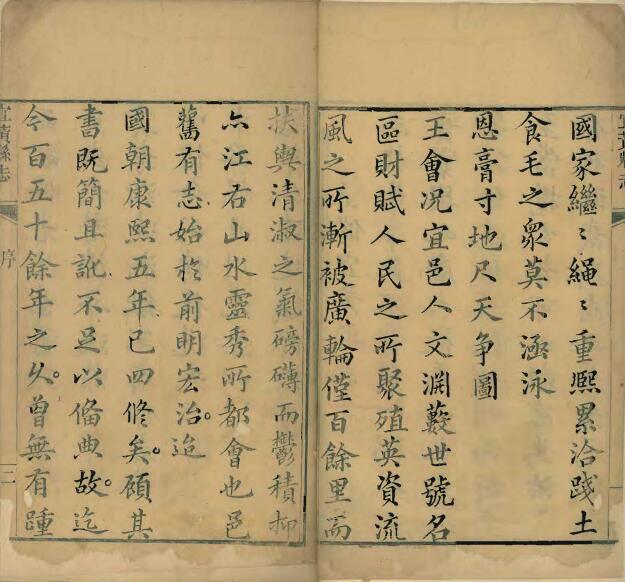 國家繼〻繩〻重熙累洽踐土
食毛之衆莫不涵泳
恩膏寸地尺天爭圖
王會况宜邑人文淵藪世號名
區財賦人民之所聚殖英資流
風之所漸被廣輪僅百餘里而
扶輿清淑之氣磅礴而鬱積抑
亦江右山水靈秀所都會也邑
舊有志始於前明宏治。迨
國朝康熙五年已四修矣。碩其
書既簡且訛不足以俻典故。迄
今百五十餘年之久。曾無有踵
宜黄縣志
序
二